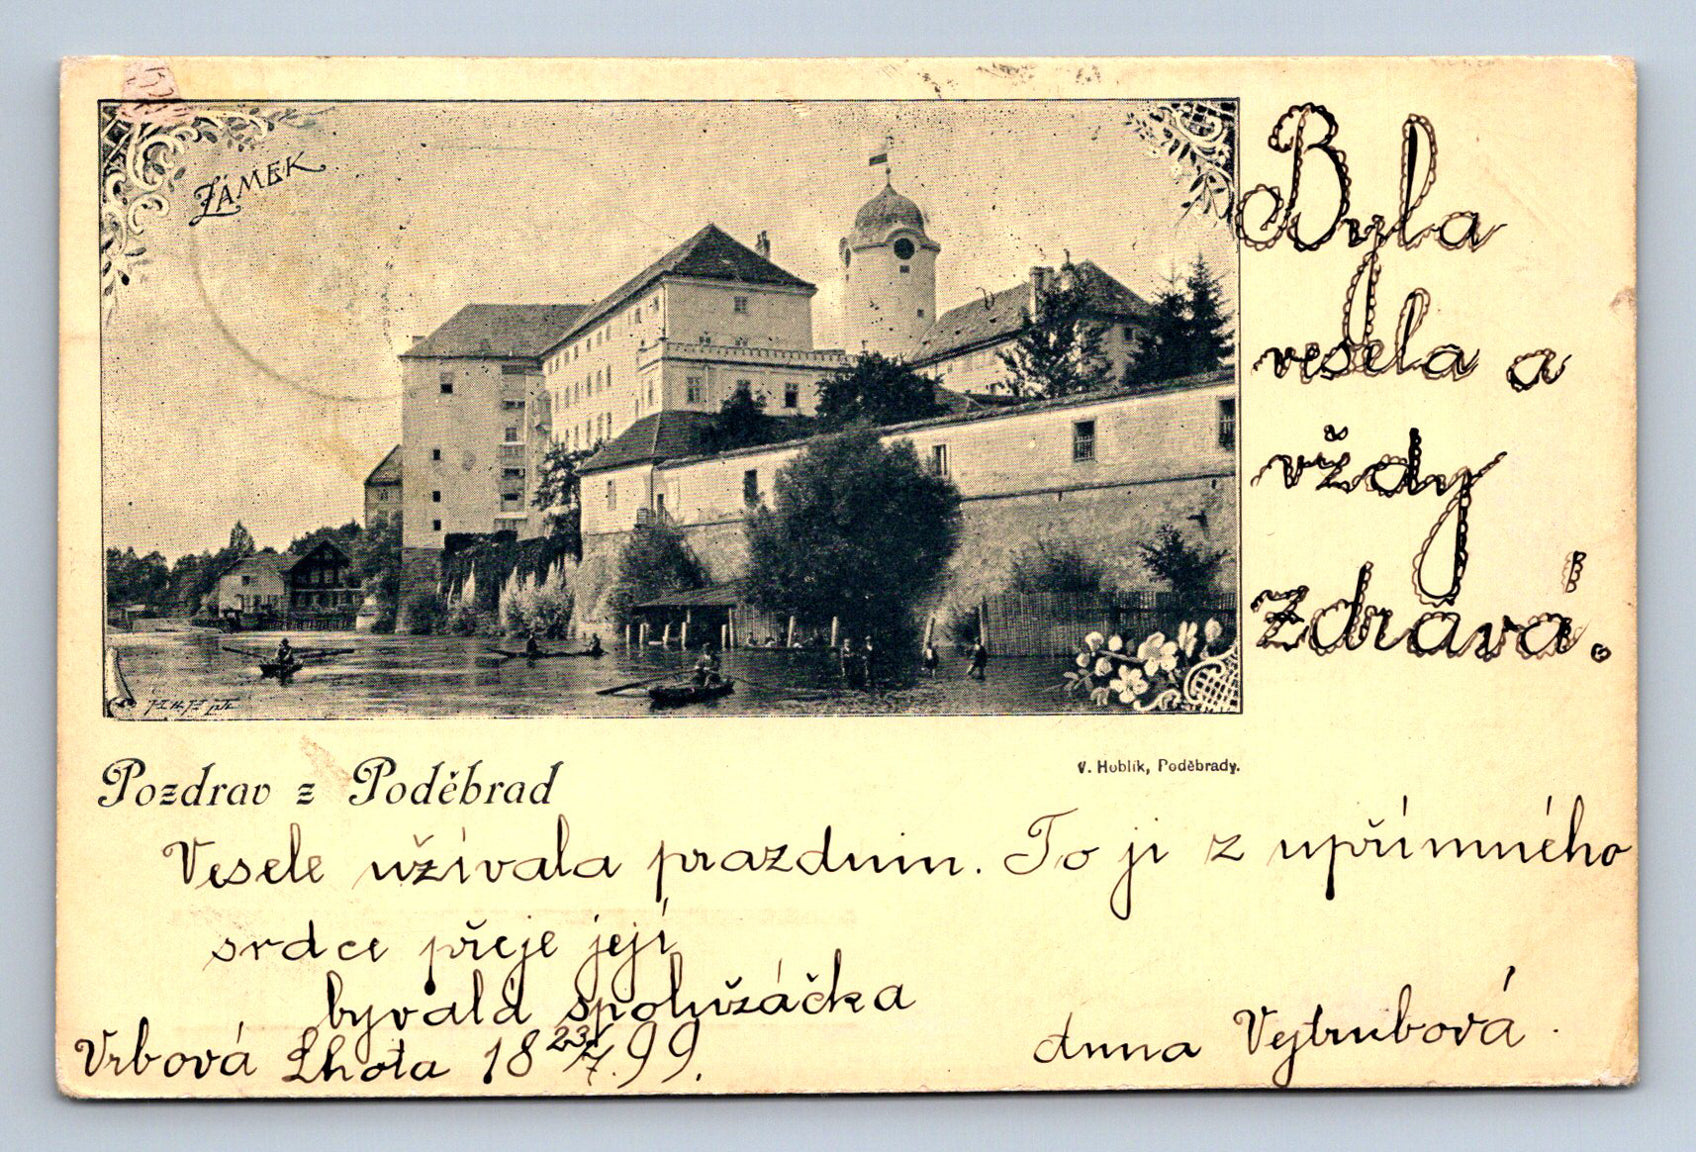 ZÁMEK
Byla
vesela a
vždy
zdravá!.
V. Hoblík, Poděbrady.
Pozdrav z Poděbrad
Vesele užívala prazdnin. To ji z upřímného
srdce přeje její
bývalá spolužáčka
Vrbová Lhota 18 23/7. 99.
Anna Vejtrubová.